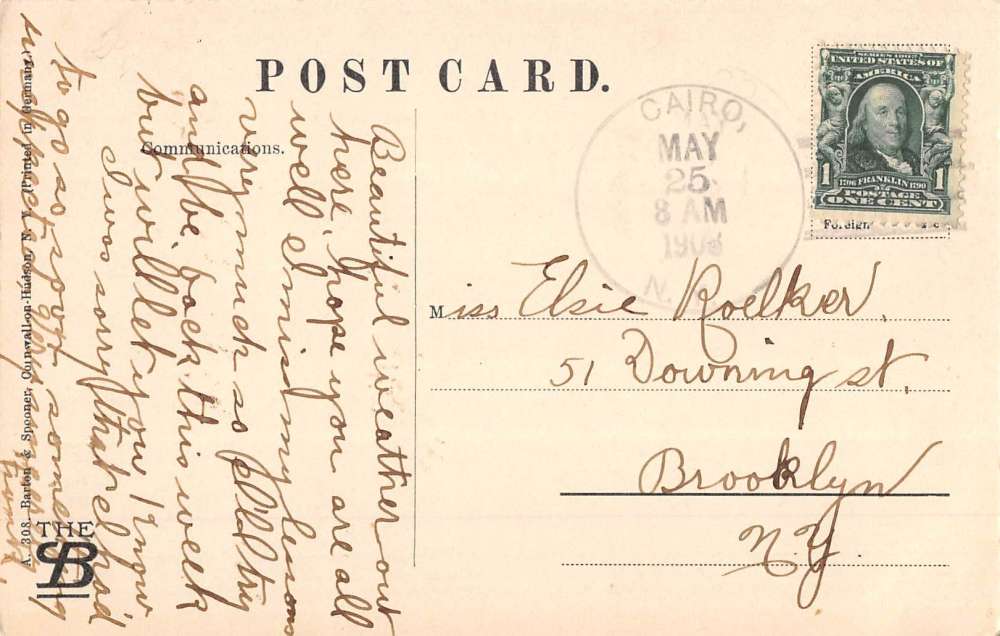 POST CARD.
Communications.
CAIRO,
MAY
25
8 AM
190
N.
SERIES 1902
UNITED STATES OF
AMERICA
1
1706 FRANKLIN 1790
1
POSTAGE
ONE CENT
Foreign
Miss Elsie Roelker.
51 Downing st.
Brooklyn
N.Y.
Beautiful weather out
here, hope you are all
well I missd my lesons
very much so I'll try
and be back this week
but will let you know
I was sorry that I had
to go so, soon
A. 308. Barton & Spooner, Cornwall-on-Hudson, N. Y. (Printed in Germany.)
THE
SB